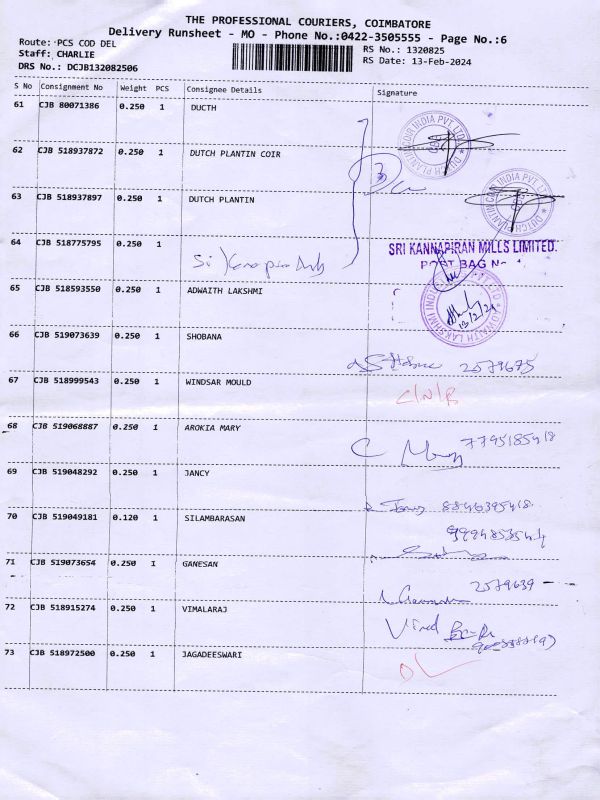 THE PROFESSIONAL COURIERS, COIMBATORE
Delivery Runsheet - MO - Phone No.:0422-3505555 - Page No.:6
Route: PCS COD DEL
Staff: CHARLIE
DRS No.: DCJB132082506
RS No.: 1320825
RS Date: 13-Feb-2024
S No Consignment No Weight PCS Consignee Details Signature
61 CJB 80071386 0.250 1 DUCTH
62 CJB 518937872 0.250 1 DUTCH PLANTIN COIR
63 CJB 518937897 0.250 1 DUTCH PLANTIN
64 CJB 518775795 0.250 1
SRI KANNAPIRAN MILLS LIMITED.
POST BAG N
65 CJB 518593550 0.250 1 ADWAITH LAKSHMI
13/2/24
66 CJB 519073639 0.250 1 SHOBANA
2579675
67 CJB 518999543 0.250 1 WINDSAR MOULD
C/N/R
68 CJB 519068887 0.250 1 AROKIA MARY
7795185418
69 CJB 519048292 0.250 1 JANCY
8846395418
70 CJB 519049181 0.120 1 SILAMBARASAN
71 CJB 519073654 0.250 1 GANESAN
2579639
72 CJB 518915274 0.250 1 VIMALARAJ
73 CJB 518972500 0.250 1 JAGADEESWARI